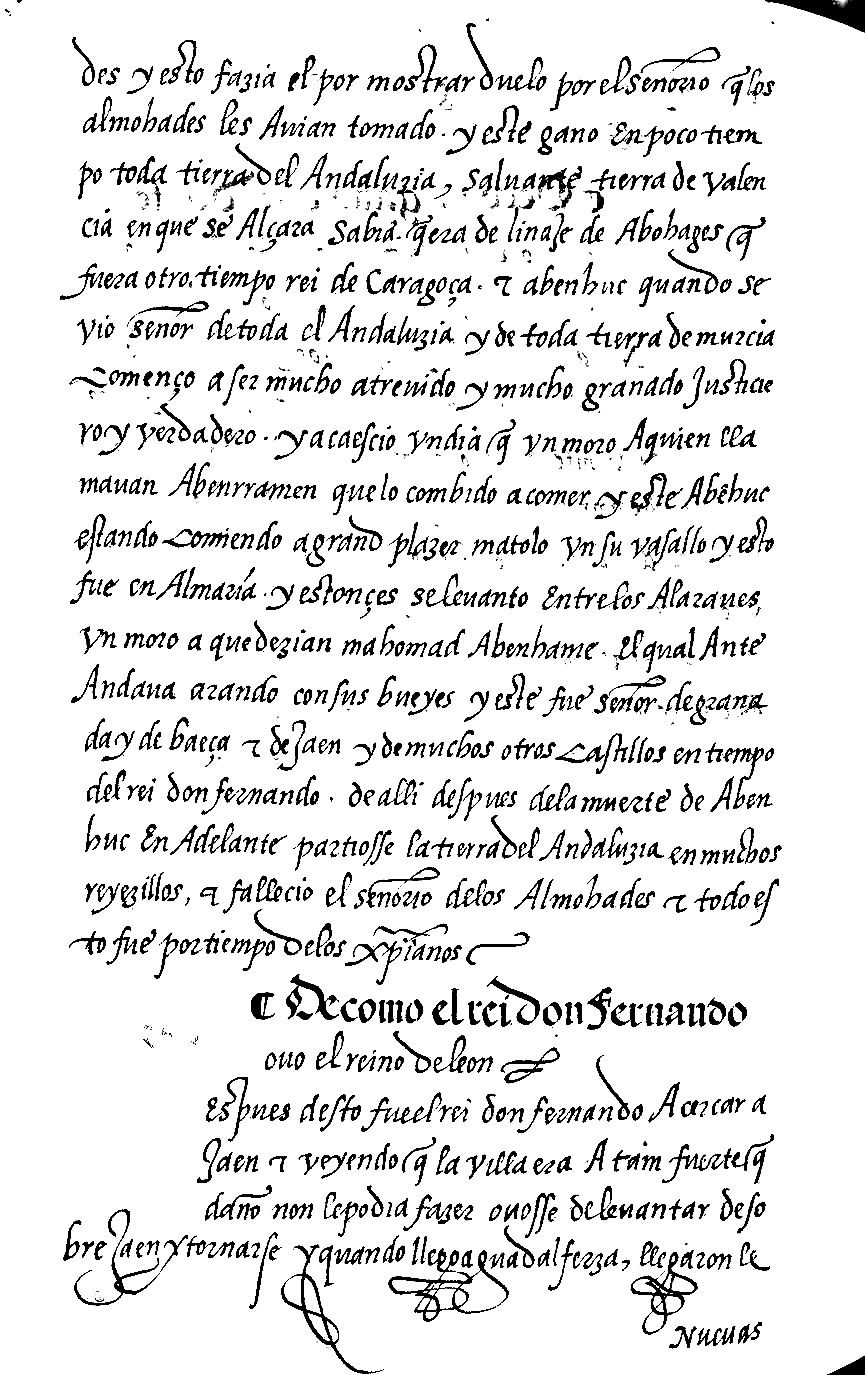 des y esto fazia el por mostrar duelo por el señorio q̃ los
almohades les Auian tomado. y este gano En poco tiem
po toda tierra del Andaluzia, saluante tierra de valen
cia en que se Alçara Sabia. q̃ era de linaje de Abohages q̃
fuera otro. tiempo rei de Caragoça. & abenhuc quando se
vio señor de toda el Andaluzia y de toda tierra de murcia
Començo a ser mucho atreuido y mucho granado Justicie
ro y verdadero. y acaescio vn dia q̃ vn moro Aquien lla
mauan Abenrramen que lo combido a comer y este Abẽhuc
estando Comiendo a grand plazer matolo vn su vasallo y esto
fue en Almaría. y estonçes se leuanto Entre los Alaraues,
vn moro a que dezian mahomad Abenhame. El qual Ante
Andaua arando con sus bueyes y este fue señor. de grana
da y de baeça & de Jaen y de muchos otros Castillos en tiempo
del rei don fernando. de alli despues de la muerte de Aben
huc En Adelante partiosse la tierra del Andaluzia en muchos
reyezillos, & fallecio el señorio delos Almohades & todo es
to fue por tiempo delos xp̃ianos
¶ De como el rei Don Fernando
ouo el reino de leon
Espues desto fue el rei don fernando A cercar a
Jaen & veyendo q̃ la villa era A tam fuerte q̃
daño non le podia fazer ouosse de leuantar de so
bre Jaen y tornarse y quando llego a guadalferza, llegaron le
Nueuas